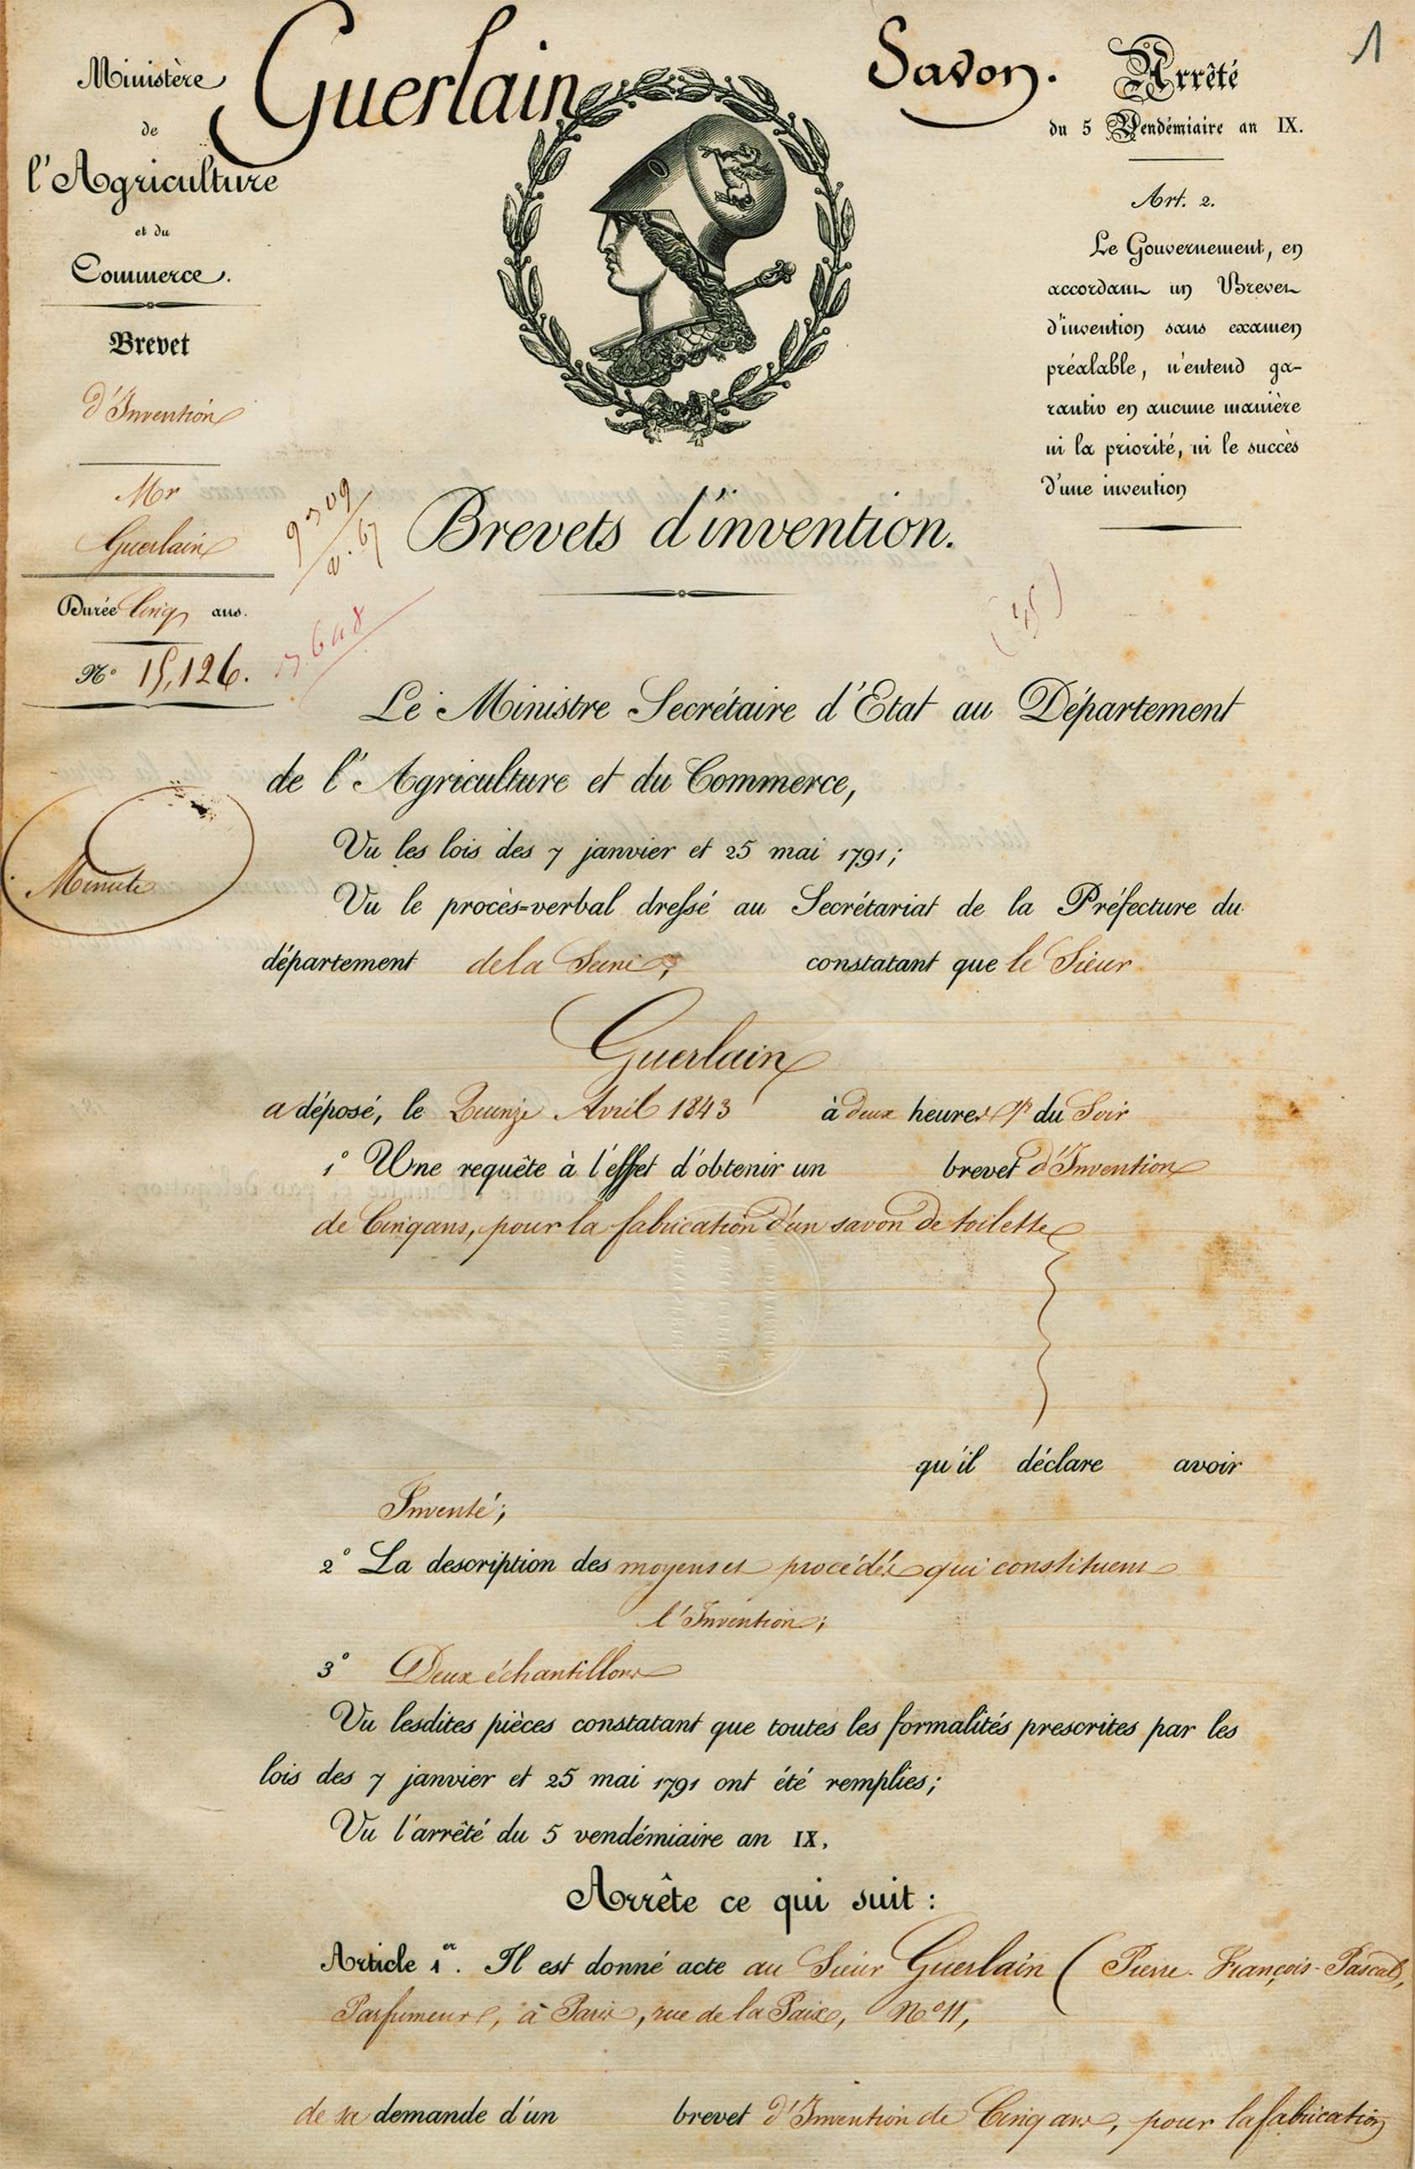 Guerlain
Savon.
1
Ministère
de
l'Agriculture
et du
Commerce.
Brevet
d'Invention
Mr
Guerlain
Durée Cinq ans.
N° 15,126.
Minute
Arrêté
du 5 Vendémiaire an IX.
Art. 2.
Le Gouvernement, en
accordant un Brevet
d'invention sans examen
préalable, n'entend ga-
rantir en aucune manière
ni la priorité, ni le succès
d'une invention
Brevets d'invention.
Le Ministre Secrétaire d'Etat au Département
de l'Agriculture et du Commerce,
Vu les lois des 7 janvier et 25 mai 1791;
Vu le procès=verbal dressé au Secrétariat de la Préfecture du
département de la Seine, constatant que le Sieur
Guerlain
a déposé, le Quinze Avril 1843 à deux heures du Soir
1° Une requête à l'effet d'obtenir un brevet d'Invention
de Cinq ans, pour la fabrication d'un savon de toilette
qu'il déclare avoir
Inventé;
2° La description des moyens et procédés qui constituent
l'Invention;
3° Deux échantillons
Vu lesdites pièces constatant que toutes les formalités prescrites par les
lois des 7 janvier et 25 mai 1791 ont été remplies;
Vu l'arrêté du 5 vendémiaire an IX,
Arrête ce qui suit :
Article 1er. Il est donné acte au Sieur Guerlain (Pierre-François-Pascal),
Parfumeur, à Paris, rue de la Paix, N° 11,
de sa demande d'un brevet d'Invention de Cinq ans, pour la fabrication